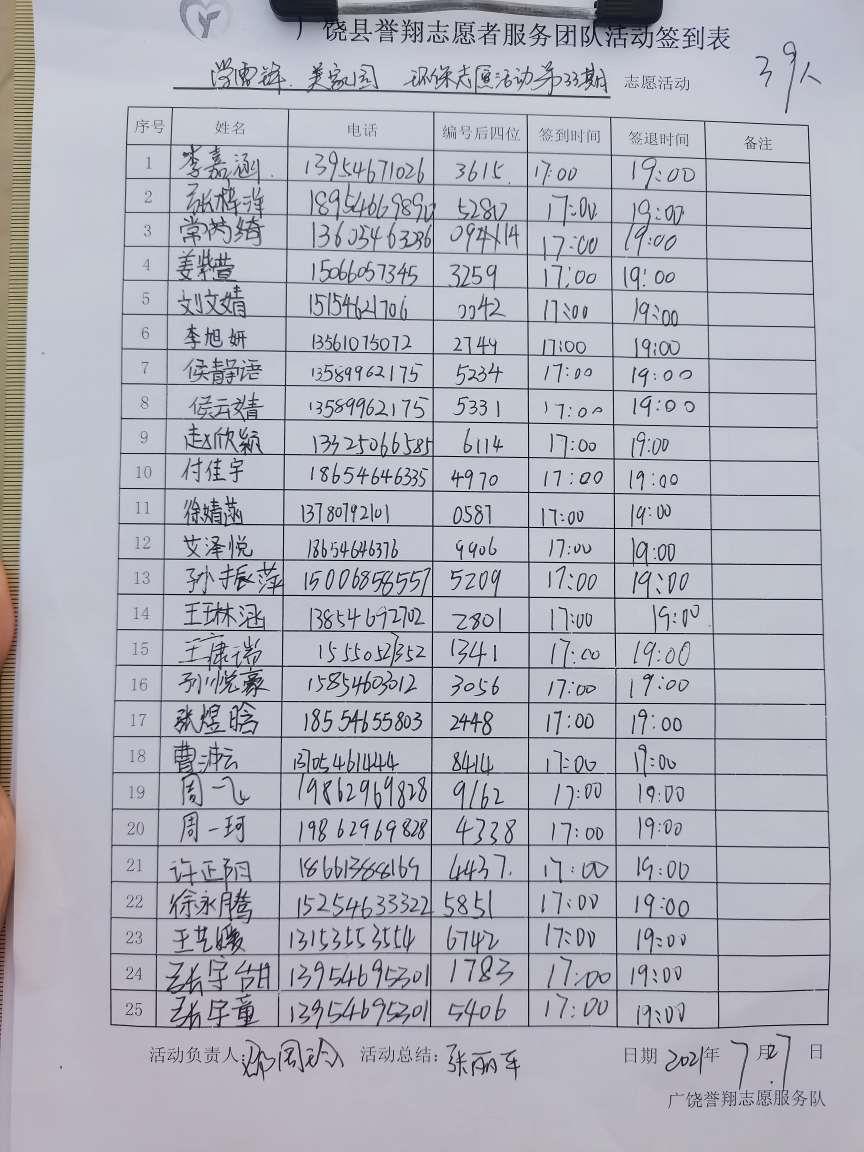 广饶县誉翔志愿者服务团队活动签到表
学雷锋.美家园 环保志愿活动第33期 志愿活动 39人
序号 姓名 电话 编号后四位 签到时间 签退时间 备注
1 李嘉涵. 13954671026 3615. 17:00 19:00
2 张梓洋 18954669890 5280 17:00 19:00
3 17:00 19:00
4 姜紫萱 15066057345 3259 17:00 19:00
5 刘文婧 15154621706 0042 17:00 19:00
6 李旭妍 13561075072 2749 17:00 19:00
7 侯静语 13589962175 5234 17:00 19:00
8 侯云婧 13589962175 5331 17:00 19:00
9 赵欣颖 13325066585 6114 17:00 19:00
10 付佳宇 18654646335 4970 17:00 19:00
11 徐婧菡 13780792101 0587 17:00 19:00
12 艾泽悦 18654646376 9906 17:00 19:00
13 孙振萍 15006858557 5209 17:00 19:00
14 王琳涵 13854692702 2801 17:00 19:00
15 王康瑞 15550527352 1341 17:00 19:00
16 孙悦豪 15854603012 3056 17:00 19:00
17 张煜晗 18554655803 2448 17:00 19:00
18 曹沛云 13705461444 8414 17:00 19:00
19 周一飞 19862969828 9162 17:00 19:00
20 周一珂 19862969828 4338 17:00 19:00
21 许正阳 4437. 17:00 19:00
22 徐永腾 15254633322 5851 17:00 19:00
23 王艺媛 13153553554 6742 17:00 19:00
24 张宇 13954695301 1783 17:00 19:00
25 张宇童 13954695301 5406 17:00 19:00
活动负责人: 活动总结: 张丽军 日期 2021年 7月27日
广饶誉翔志愿服务队